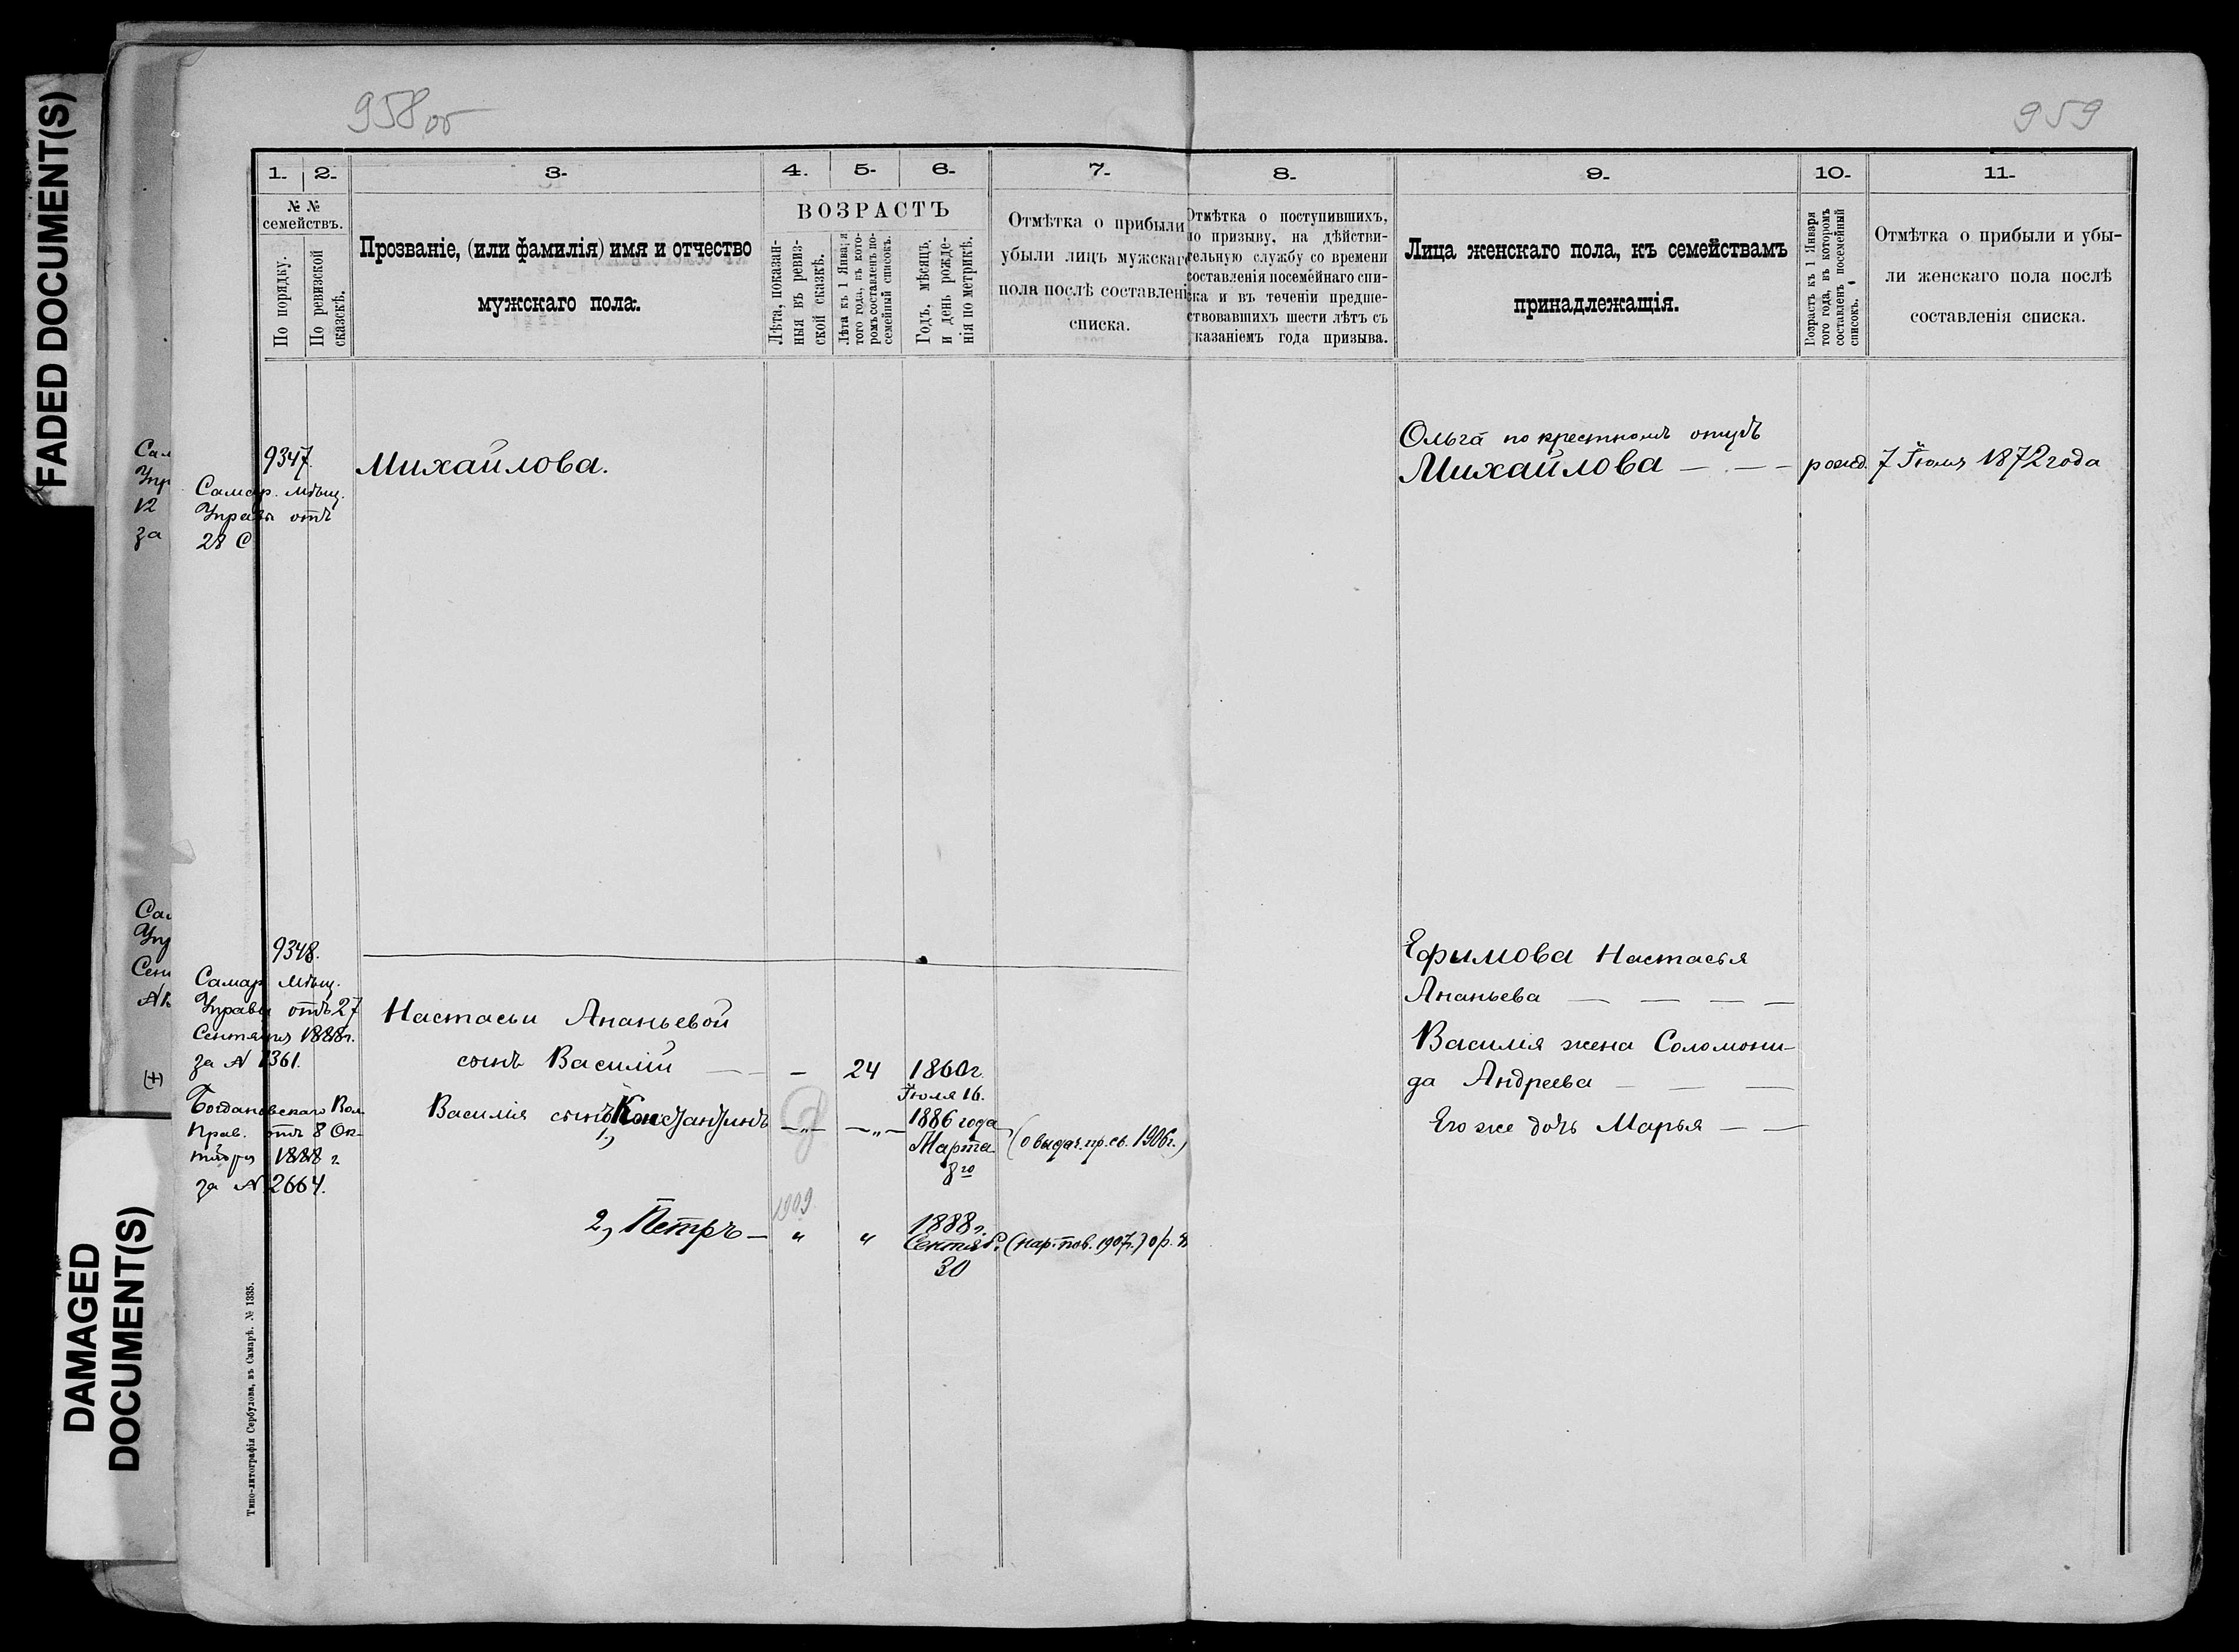 FADED DOCUMENT(S)
DAMAGED
DOCUMENT(S)
958 об
959
1.
2.
3.
4.
5.
6.
7.
8.
9.
10.
11.
№ №
семействъ.
По порядку.
По ревизской
сказкѣ.
Прозваніе, (или фамилія) имя и отчество
мужскаго пола.
ВОЗРАСТЪ
Лѣта, показан-
ныя въ ревиз-
ской сказкѣ.
Лѣта къ 1 Января
того года, въ кото-
ромъ составленъ по-
семейный списокъ.
Годъ, мѣсяцъ,
и день рожде-
нія по метрикѣ.
Отмѣтка о прибыли
убыли лицъ мужскаго
пола послѣ составлені
списка.
Отмѣтка о поступившихъ,
по призыву, на дѣйстви-
тельную службу со времени
составленія посемейнаго спи-
ска и въ теченіи предше-
ствовавшихъ шести лѣтъ съ
казаніемъ года призыва.
Лица женскаго пола, къ семействамъ
принадлежащія.
Возрастъ къ 1 Января
того года, въ которомъ
составленъ посемейный
списокъ.
Отмѣтка о прибыли и убы-
ли женскаго пола послѣ
составленія списка.
9347.
Самар. Мѣщ.
Управы отъ
28 С
Михайлова.
Ольга по крестномъ отцѣ
Михайлова — . — —
рожд. 7 Іюля 1872 года
9348.
Самар. Мѣщ.
Управы отъ 27
Сентября 1888 г.
за № 1361.
Богдановскаго Вол.
Прав. отъ 8 Ок-
тября 1888 г.
за № 2664.
Настасьи Ананьевой
сынъ Василій — — — 24 1860 г.
Іюля 16.
Василія сынъ Константинъ —„— —„— 1886 года (о выдач. пр. св. 1906 г.)
1,) Марта
8го
1909
2, Петръ — „ „ 1888 г.
Сентяб. (нар. пов. 1907 г.)
30
Ефимова Настасья
Ананьева — — — —
Василія жена Соломони-
да Андреева — — —
Его же дочь Марья — —
Типо-литографія Сербулова, въ Самарѣ. № 1335.
Сал
Упр
12
за
Сал
Упр
Сен
(+)